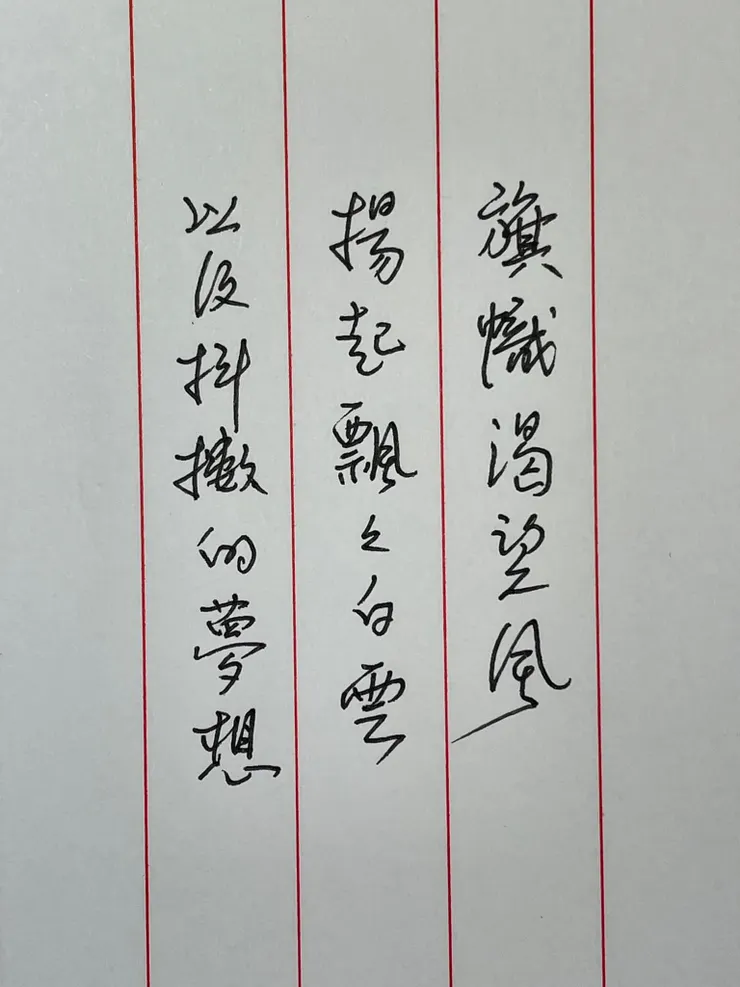 旗幟渴望風
揚起飄々白雲
以及抖擻的夢想